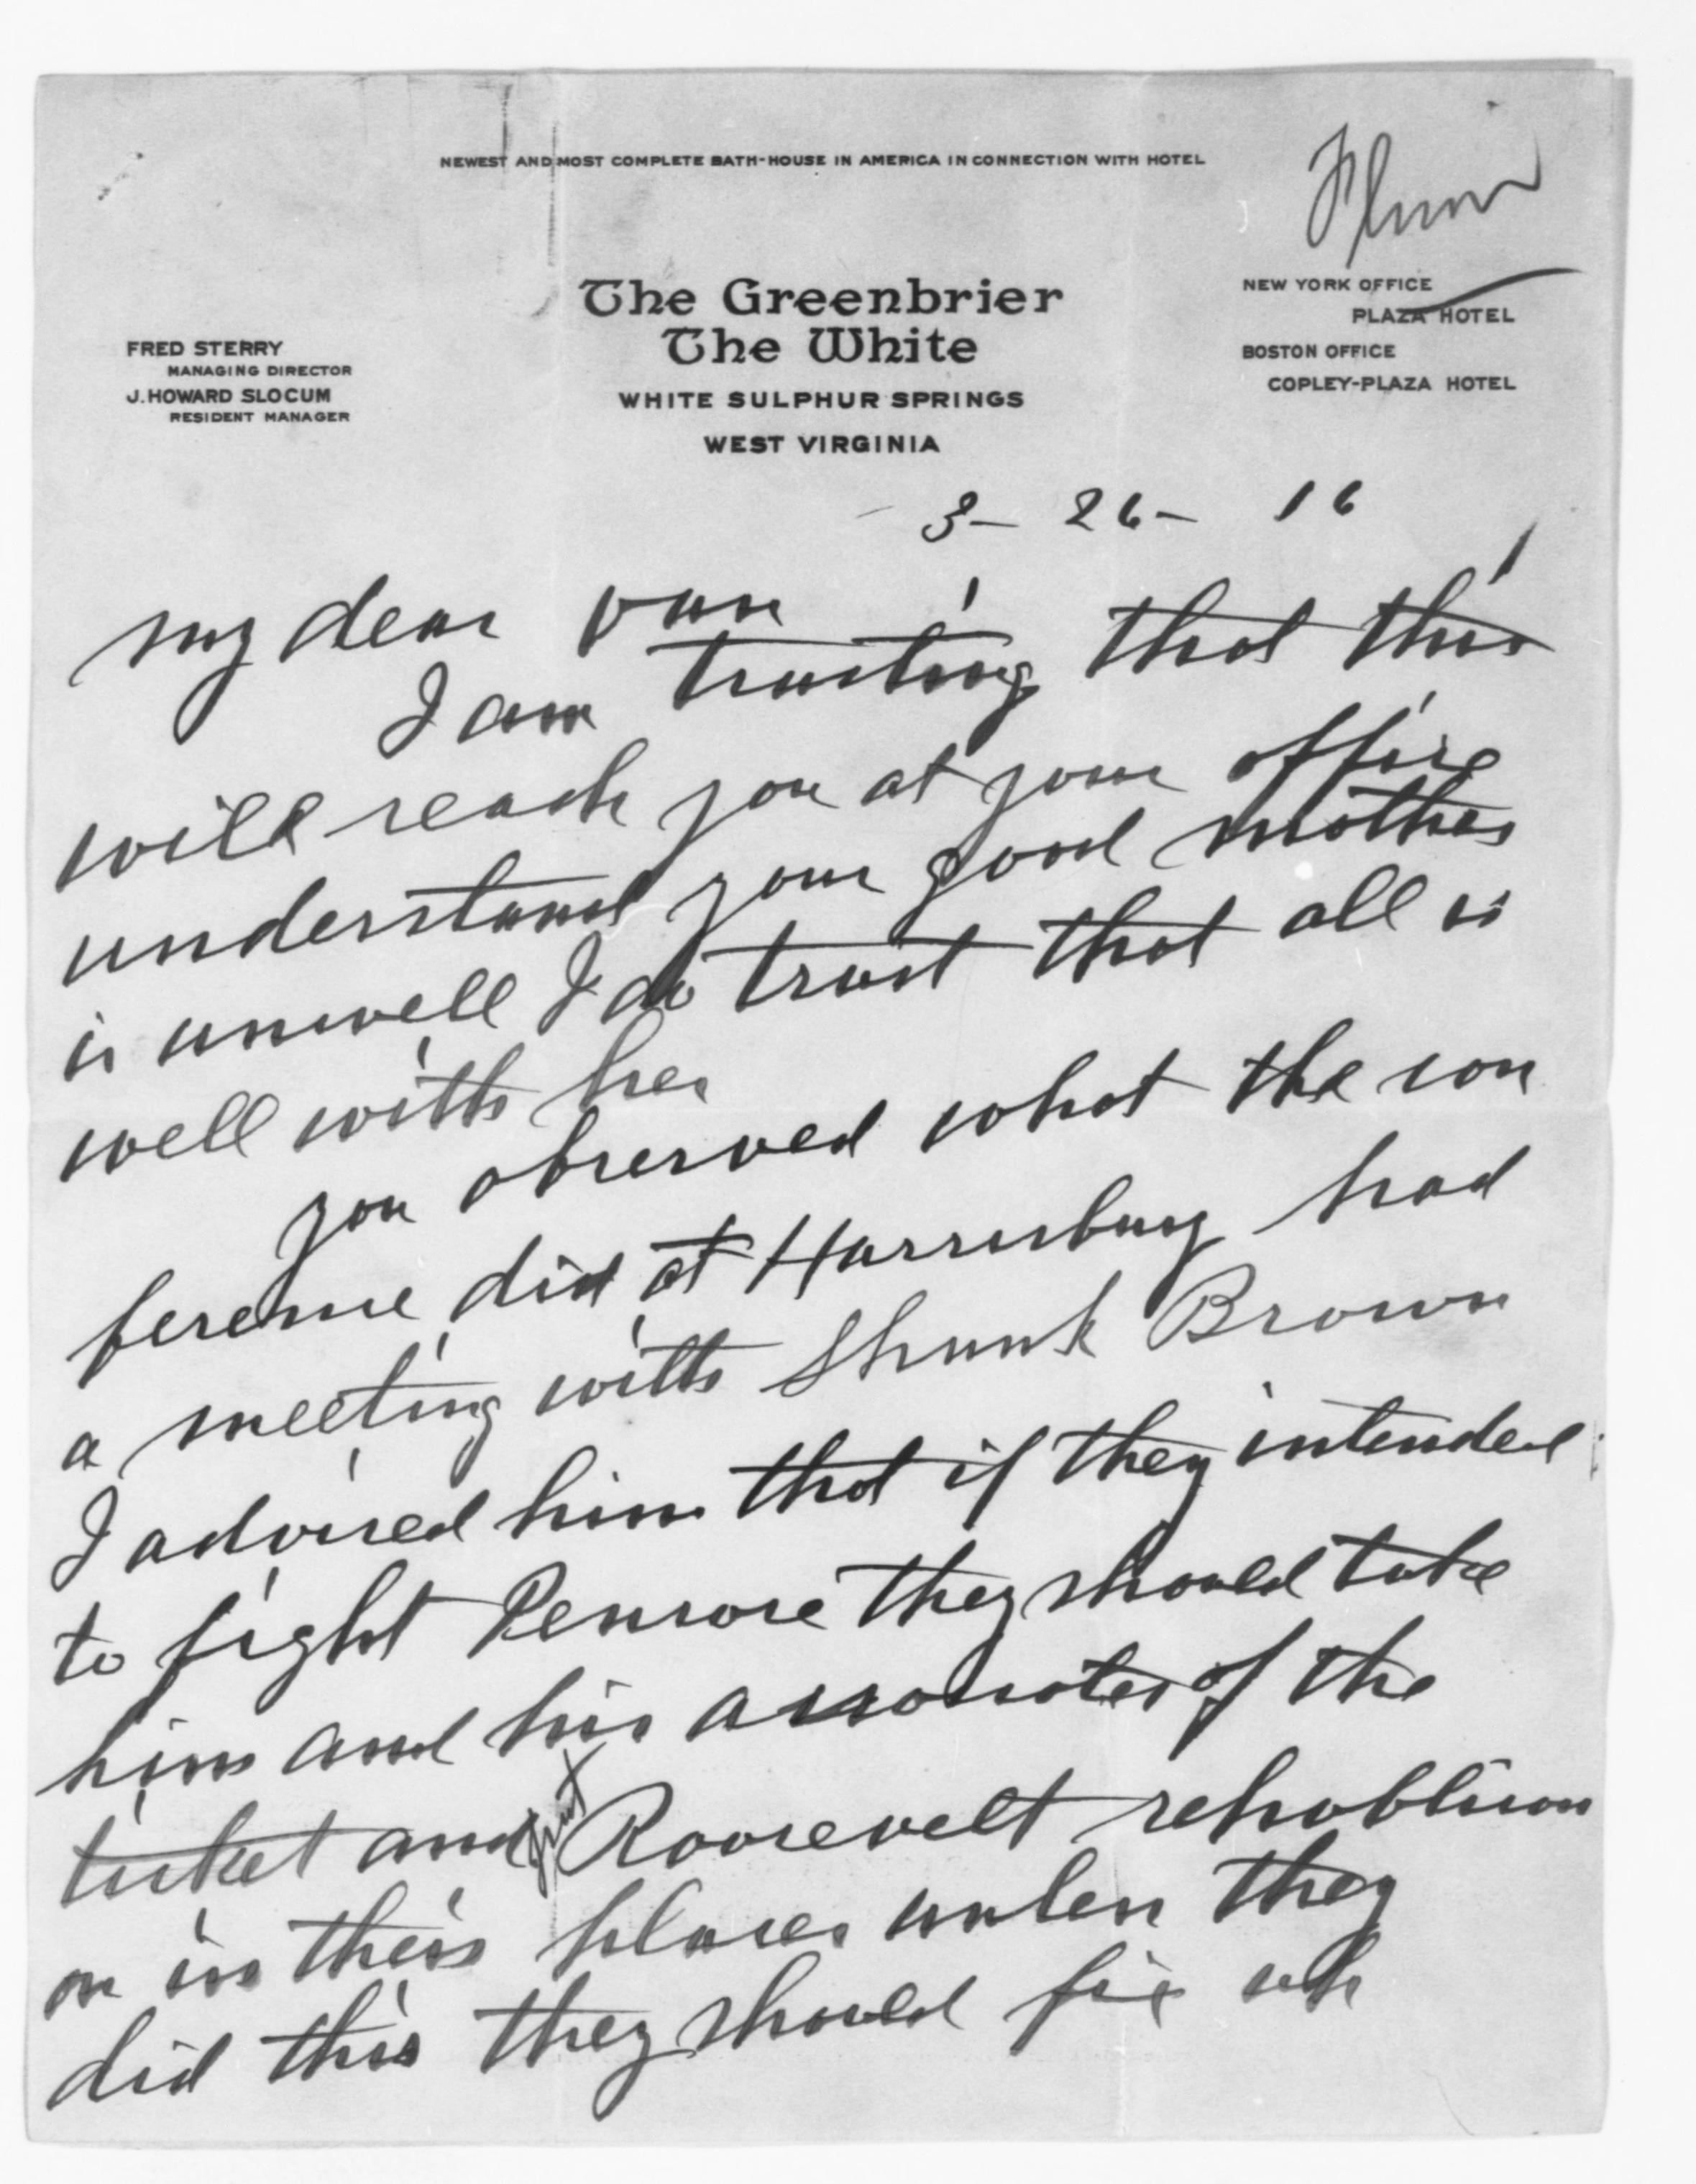 NEWEST AND MOST COMPLETE BATH-HOUSE IN AMERICA IN CONNECTION WITH HOTEL
Flinn
The Greenbrier
The White
WHITE SULPHUR SPRINGS
WEST VIRGINIA
FRED STERRY
MANAGING DIRECTOR
J. HOWARD SLOCUM
RESIDENT MANAGER
NEW YORK OFFICE
PLAZA HOTEL
BOSTON OFFICE
COPLEY-PLAZA HOTEL
3- 26- 16
my dear Van
I am trusting that this
will reach you at your office
understand your good mother
is unwell I do trust that all is
well with her
you observed what the con
ference did at Harrisburg had
a meeting with Shunk Brown
I advised him that if they intended
to fight Penrose they should take
him and his associates of the
ticket and put Roosevelt
on in their places unless they
did this they should fix up